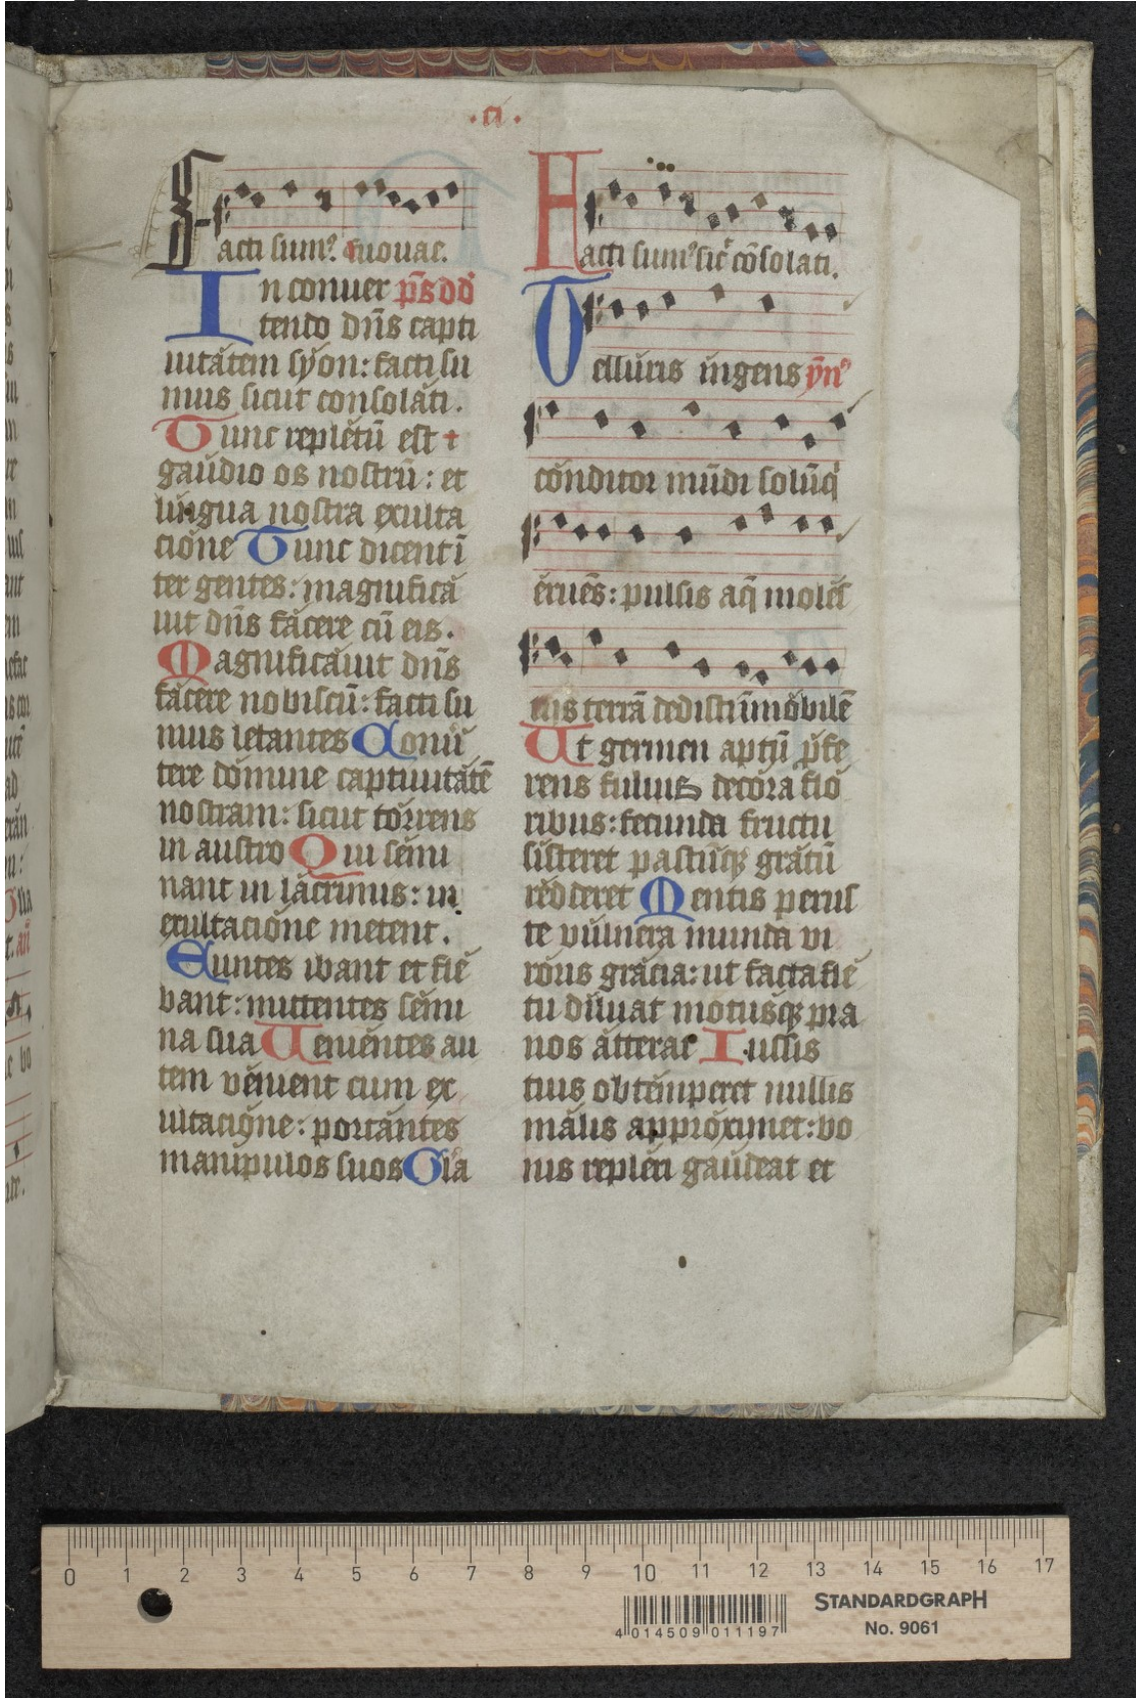 ·ci·
Facti sum⁹. euouae.
In conuer p̄s dd
tendo dn̄s capti
uitátem sýon: facti su
mus sicut consoláti.
Tunc replétū est †
gaúdio os nostrū: et
língua nostra exulta
cióne Tunc dicent ī
ter gentes: magnificá
uit dn̄s fácere cū eis.
Magnificáuit dn̄s
fácere nobiscū: facti su
mus letantes Conuér
tere dómine captiuitátē
nostram: sicut tórrens
in austro Qui sémi
nant in lácrimis: in
exultacióne metent.
Euntes ibant et flé
bant: mittentes sémi
na sua Ueniéntes au
tem vénient cum ex
ultacióne: portántes
manípulos suos Gl'a
Facti sum⁹ sic̄ cōsolati.
Tellúris ingens ym̄⁹
cónditor mūdi solūq
éruēs: pulsis aq̄ molés
tijs terrā dedisti īmóbilē
Ut germen aptū p̄fe
rens fuluis decóra fló
ribus: fecunda fructu
sisteret pastūq; grátū
rédderet Mentis perus
te vúlnera munda vi
róris grácia: ut facta flé
tu díluat motúsq; pra
uos átterat Iussis
tuis obtémperet nullis
mális appróximet: bo
nis repléri gaúdeat et
0 1 2 3 4 5 6 7 8 9 10 11 12 13 14 15 16 17
STANDARDGRAPH
No. 9061
4 014509 011197